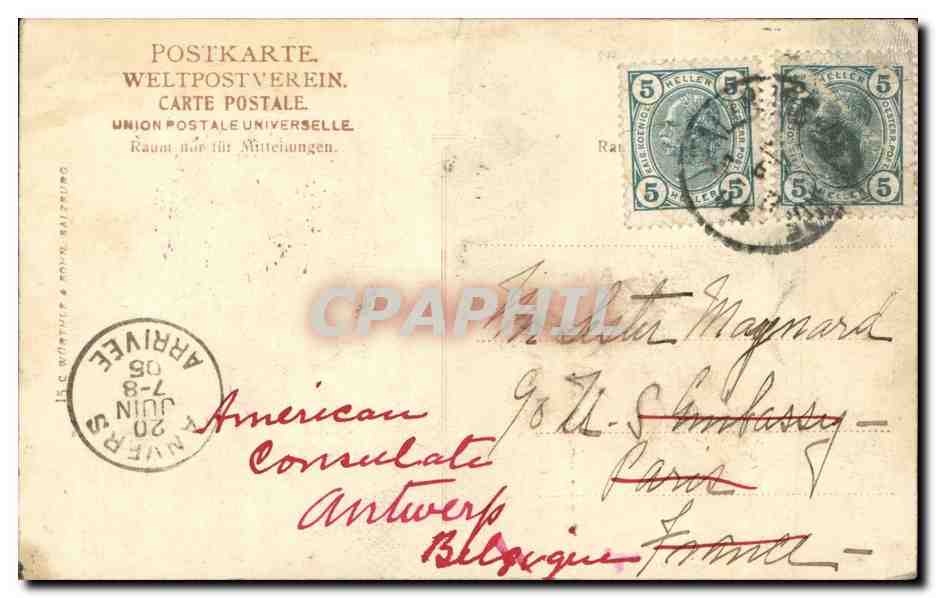 POSTKARTE.
WELTPOSTVEREIN.
CARTE POSTALE.
UNION POSTALE UNIVERSELLE.
Raum nur für Mitteilungen.
Rau
15 C WÜRTHLE & SOHN, SALZBURG
5 HELLER 5
KAIS. KOENIG. OESTERR. POST
5 HELLER 5
5 HELLER 5
OESTERR. POST
5 HELLER 5
CPAPHIL
ANVERS
20
JUIN
7-8
05
ARRIVEE
Maynard
90 U. S Embassy
Paris
France
American
Consulate
Antwerp
Belgique